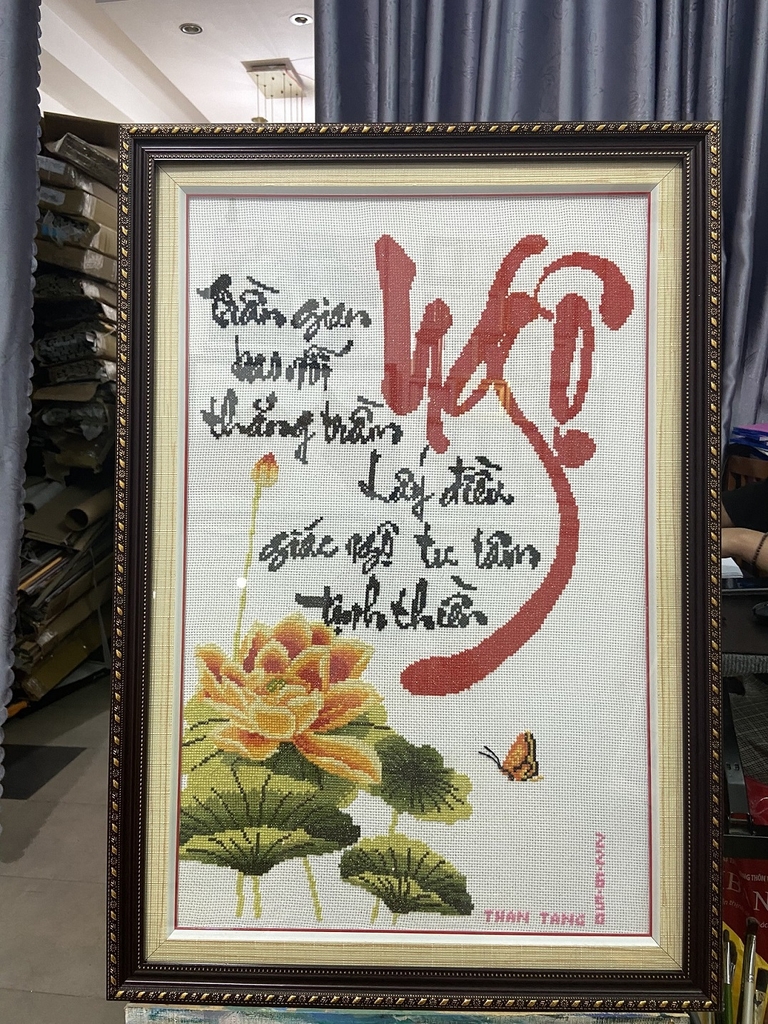 Ngộ
trần gian
bao nỗi
thăng trầm
Lấy điều
giác ngộ tu tâm
tịnh thiền
THAN TANG